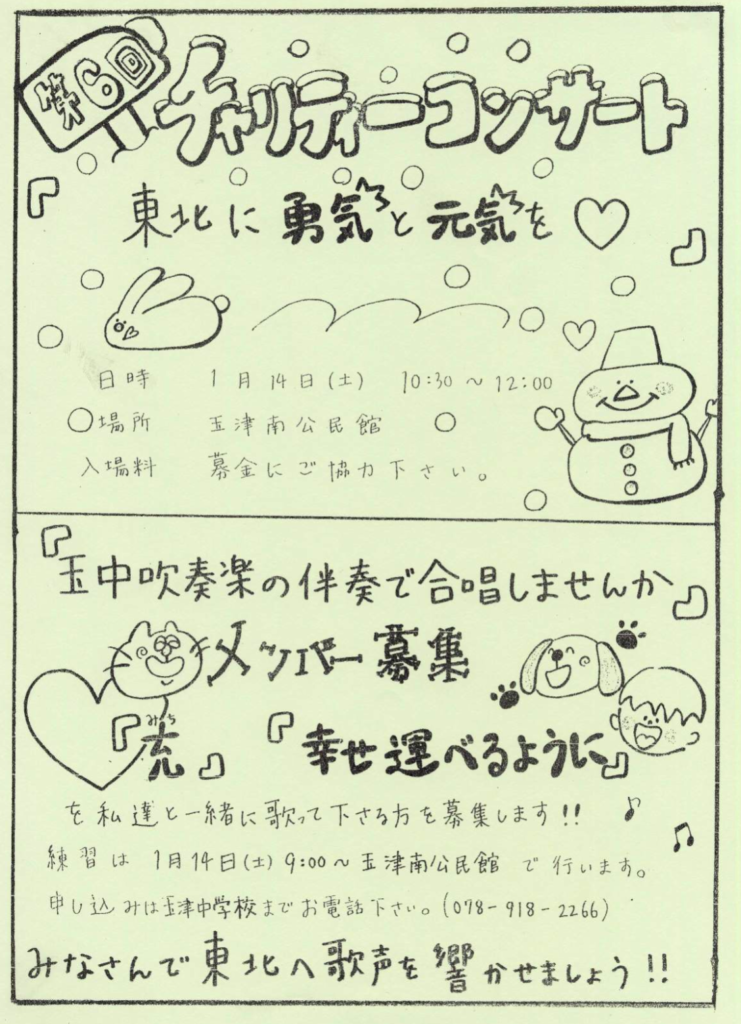 第6回
チャリティーコンサート
『東北に勇気と元気を♡』
日時 1月14日(土) 10:30～12:00
場所 玉津南公民館
入場料 募金にご協力下さい。
『玉中吹奏楽の伴奏で合唱しませんか』
メンバー募集
みち
『充』『幸せ運べるように』
を私達と一緒に歌って下さる方を募集します!!
練習は 1月14日(土) 9:00～玉津南公民館 で行います。
申し込みは玉津中学校までお電話下さい。(078-918-2266)
みなさんで東北へ歌声を響かせましょう!!